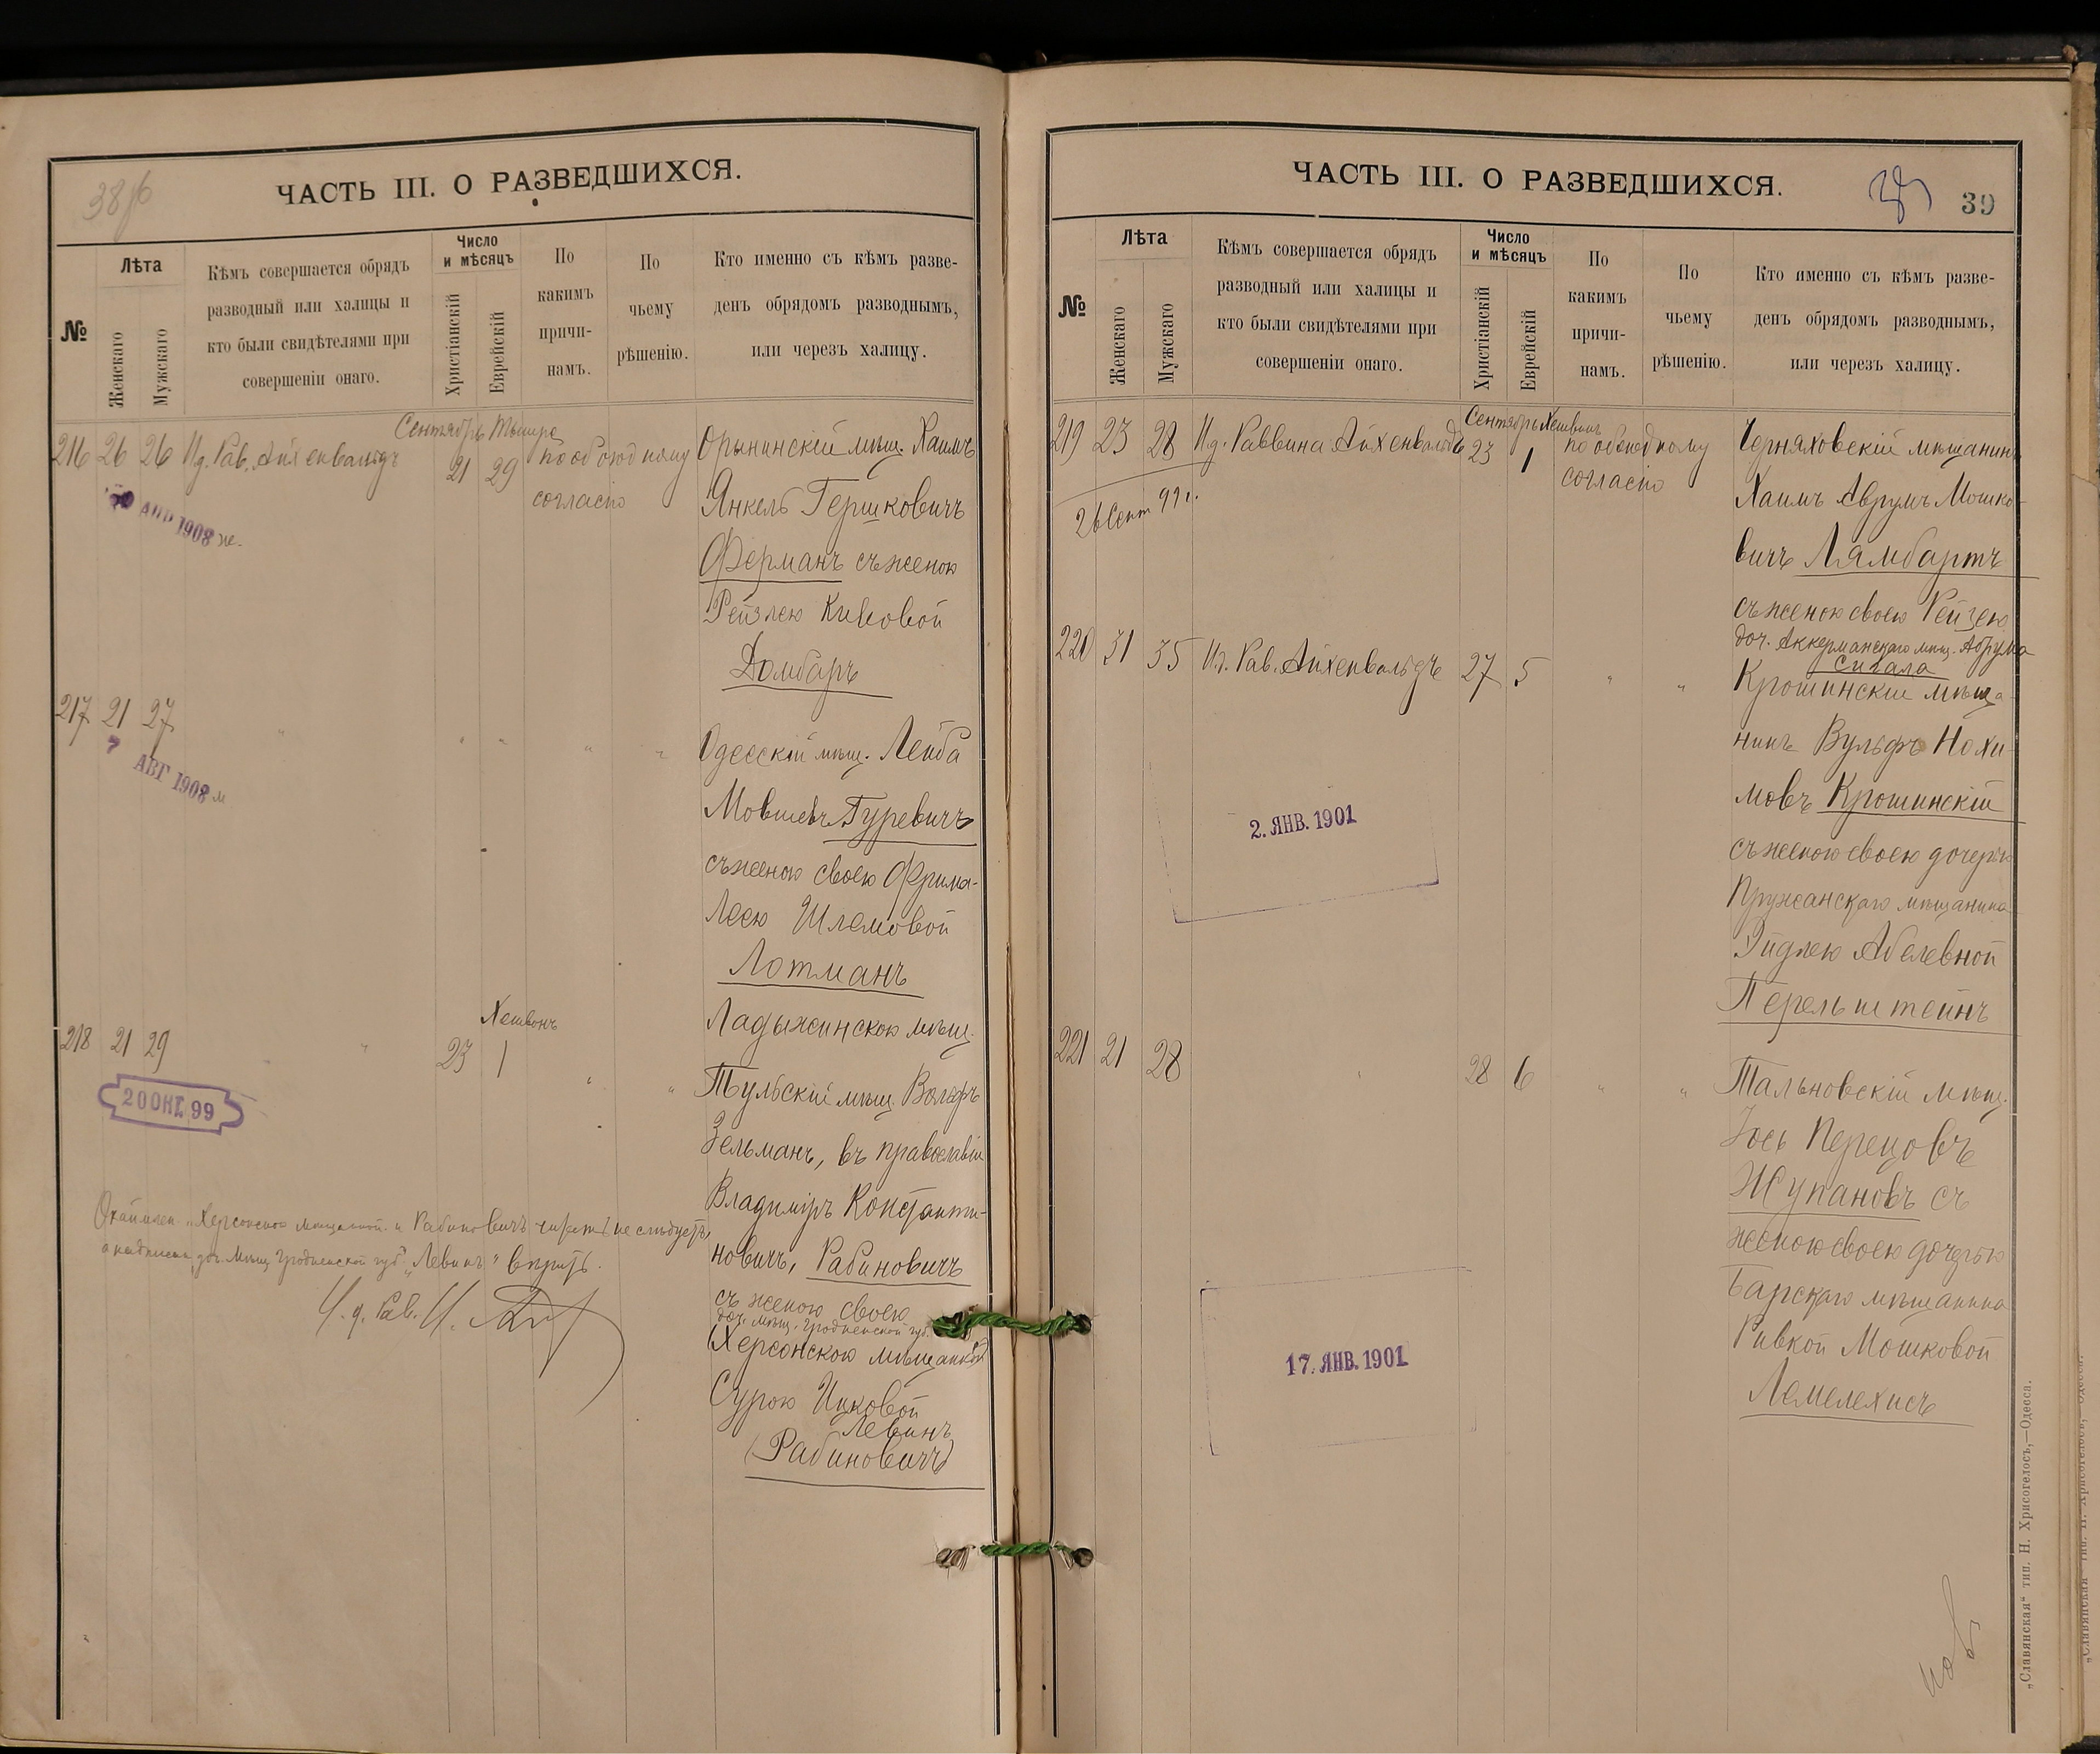 38/б
ЧАСТЬ III. О РАЗВЕДШИХСЯ.
№
Лѣта
Женскаго
Мужскаго
Кѣмъ совершается обрядъ
разводный или халицы и
кто были свидѣтелями при
совершеніи онаго.
Число
и мѣсяцъ
Христіанскій
Еврейскій
По
какимъ
причи-
намъ.
По
чьему
рѣшенію.
Кто именно съ кѣмъ разве-
денъ обрядомъ разводнымъ,
или черезъ халицу.
Сентябрь Тишре
216 26 26 И.д. Рав. Айхенвальдъ 21 29 по обоюдному
согласію
Орынинскій мѣщ. Хаимъ
Янкель Гершковичъ
Ферманъ съ женою
Рейзлею Кивовой
Домбаръ
АПР 1908 ж.
217 21 27 " " " " "
7 АВГ 1908 м
Одесскій мѣщ. Лейба
Мовшевъ Гуревичъ
съ женою своею Фрима-
Леею Шлемовой
Лотманъ
Ладыжинскою мѣщ.
Хешвонъ
218 21 29 " 23 1 " "
20 ОКТ. 99
Тульскій мѣщ. Вольфъ
Зельманъ, въ православіи
Владимиръ Константи-
новичъ, Рабиновичъ
съ женою своею
доч. мѣщ. Гродненской губ.
(Херсонскою мѣщанкой)
Сурою Ицковой
Левинъ
(Рабиновичъ)
"Херсонскою мѣщанкой" и Рабиновичъ читать не слѣдуетъ,
а надписан. доч. мѣщ. Гродненской губ. "Левинъ" вѣрить.
И. д. Рав.
ЧАСТЬ III. О РАЗВЕДШИХСЯ.
39
№
Лѣта
Женскаго
Мужскаго
Кѣмъ совершается обрядъ
разводный или халицы и
кто были свидѣтелями при
совершеніи онаго.
Число
и мѣсяцъ
Христіанскій
Еврейскій
По
какимъ
причи-
намъ.
По
чьему
рѣшенію.
Кто именно съ кѣмъ разве-
денъ обрядомъ разводнымъ,
или черезъ халицу.
Сентябрь Хешвонъ
219 23 28 И.д. Раввина Айхенвальдъ 23 1 по обоюдному
согласію
26 Сент 99 г.
Черняховскій мѣщанинъ
Хаимъ Аврумъ Мошко-
вичъ Лямбартъ
съ женою своею Рейзею
доч. Аккерманскаго мѣщ. Абрума
Сигала
220 31 35 И.д. Рав. Айхенвальдъ 27 5 " "
Крошинскій мѣща-
нинъ Вульфъ Нохи-
мовъ Крошинскій
съ женою своею дочерью
Пружанскаго мѣщанина
Эйдлею Абелевной
Перельштейнъ
2. ЯНВ. 1901
221 21 28 " 28 6 " "
Тальновскій мѣщ.
Іось Перецовъ
Жупановъ съ
женою своею дочерью
Барскаго мѣщанина
Ривкой Мошковой
Лемелехисъ
17. ЯНВ. 1901
„Славянская“ тип. Н. Хрисогелосъ,—Одесса.